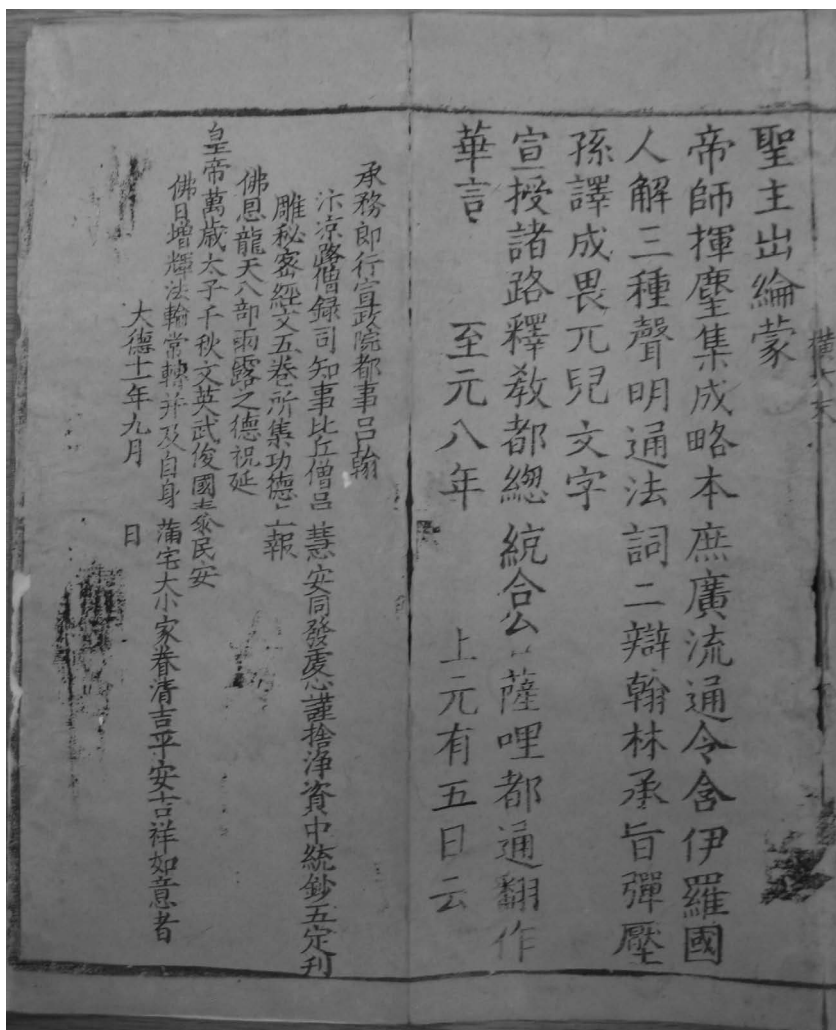 聖主出綸蒙
帝師揮麈集成略本庶廣流通令含伊羅國
人解三種聲明通法詞二辯翰林承旨彈壓
孫譯成畏兀兒文字
宣授諸路釋教都總統合公薩哩都通翻作
華言 至元八年 上元有五日云
承務郎行宣政院都事呂翰
汴涼路僧録司知事比丘僧呂慧安同發虔心謹捨淨資中統鈔五定刊
雕秘密經文五卷所集功德上報
佛恩龍天八部雨露之德祝延
皇帝萬歲太子千秋文英武俊國泰民安
佛日增輝法輪常轉并及自身滿宅大小家眷清吉平安吉祥如意者
大德十一年九月 日